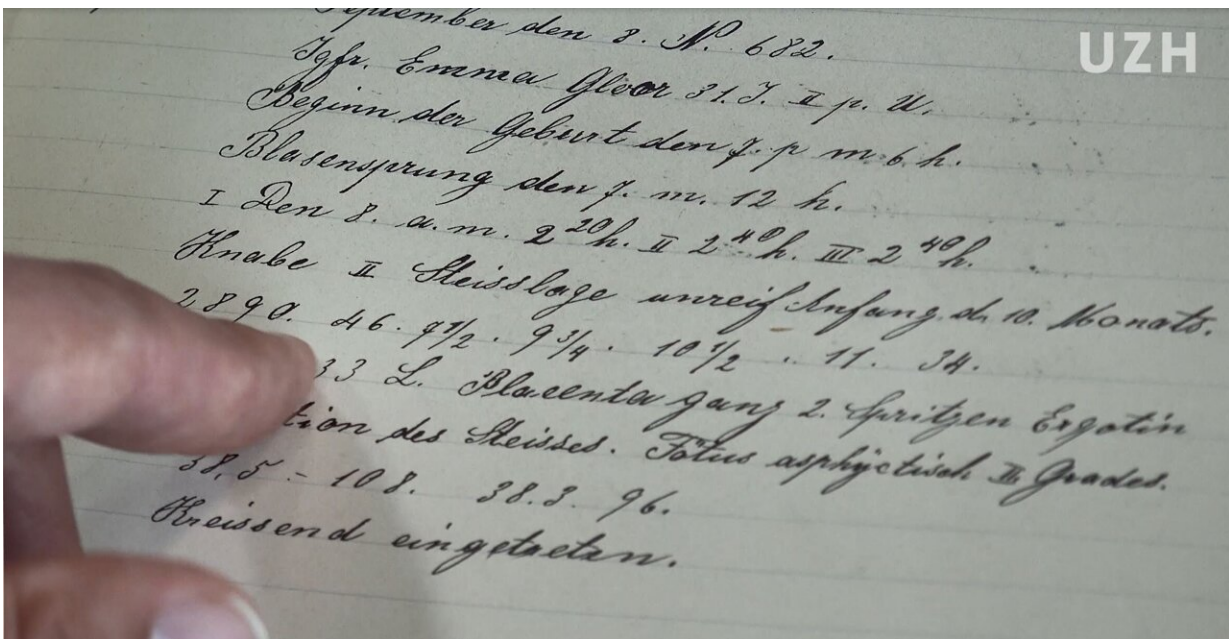 September den 8. N. 682.
UZH
Jgfr. Emma Gloor 31. J. II p. U.
Beginn der Geburt den 7. p m 6 h.
Blasensprung den 7. m. 12 h.
I Den 8. a. m. 2 20 h. II 2 40 h. III 2 40 h.
Knabe II Steisslage unreif Anfang d. 10. Monats.
2890. 46. 7 1/2 . 9 3/4 . 10 1/2 . 11. 34.
33 L. Placenta ganz 2. Spritzen Ergotin
tion des Steisses. Fötus asphyctisch II Grades.
38,5 - 108. 38.3. 96.
Kreissend eingetreten.